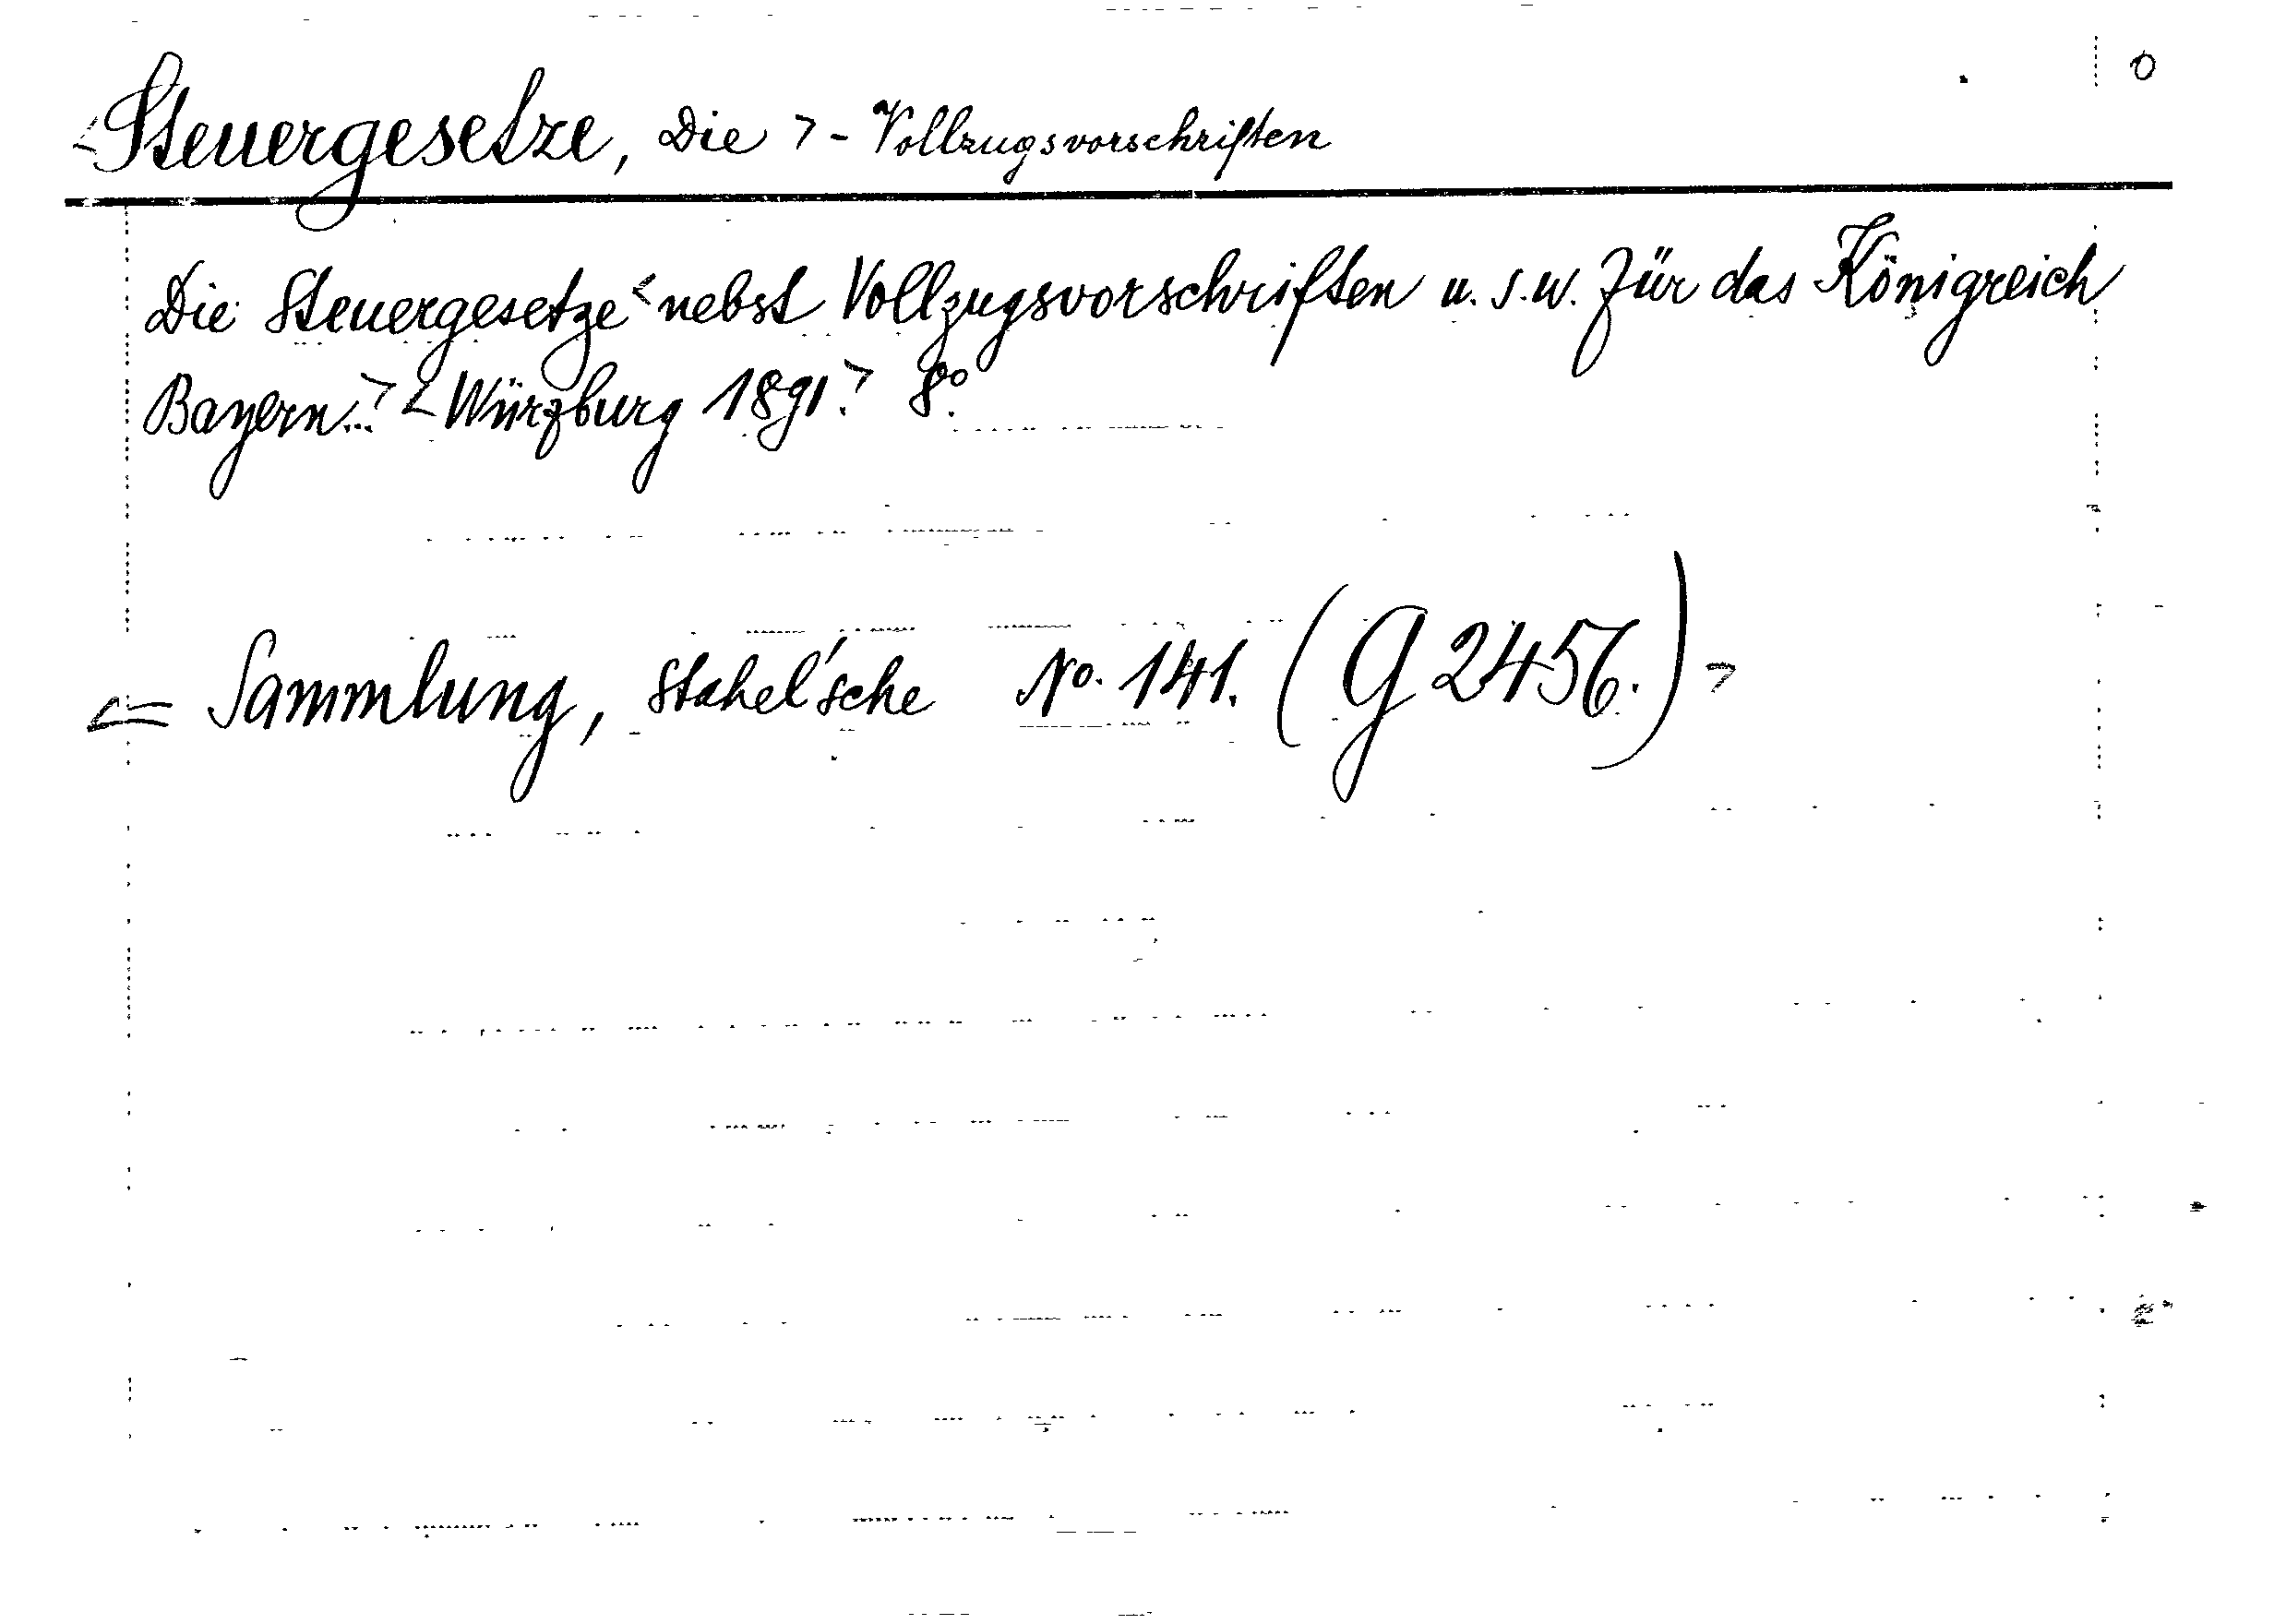 <Steuergesetze, Die > - Vollzugsvorschriften
Die Steuergesetze < nebst Vollzugsvorschriften u. s. w. für das Königreich
Bayern..> < Würzburg 1891.> 8°.
<= Sammlung, Stahel'sche No. 141. (G 2456.) >